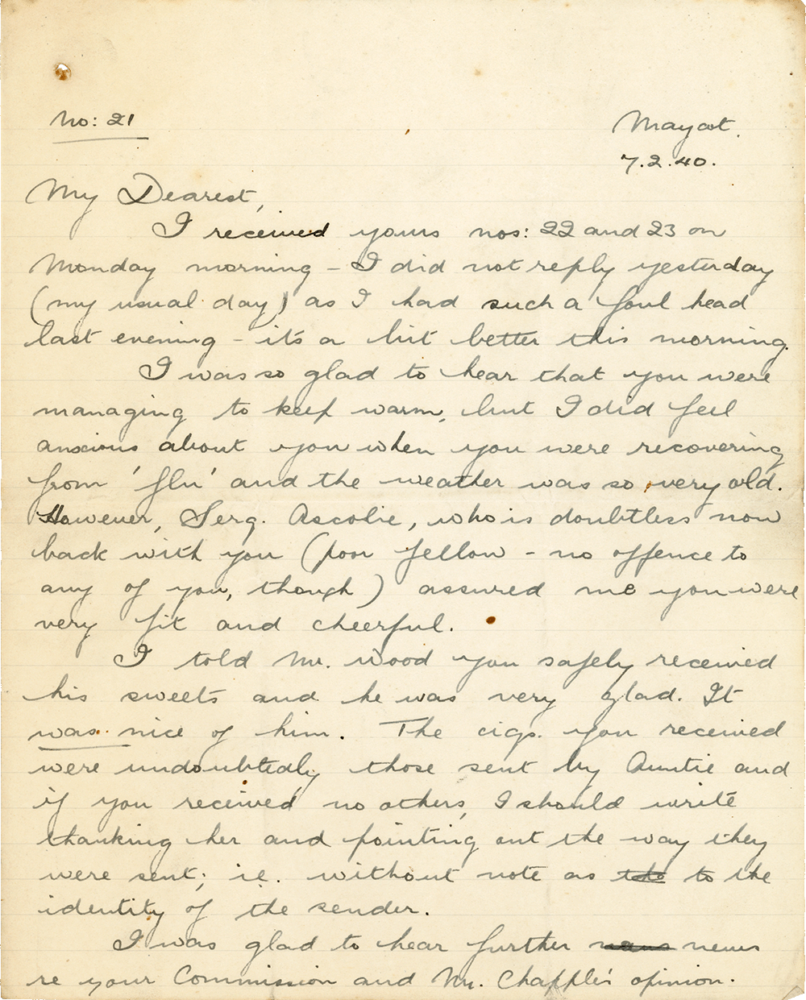 No: 21
Maycot.
7.2.40.
My Dearest,
I received yours nos: 22 and 23 on
Monday morning - I did not reply yesterday
(my usual day) as I had such a foul head
last evening - it's a bit better this morning.
I was so glad to hear that you were
managing to keep warm, but I did feel
anxious about you when you were recovering
from 'flu' and the weather was so very old.
However, Serg. Ascolie, who is doubtless now
back with you (poor fellow - no offence to
any of you, though) assured me you were
very fit and cheerful.
I told Mr. Wood you safely received
his sweets and he was very glad. It
was nice of him. The cigs. you received
were undoubtedly those sent by Auntie and
if you received no others, I should write
thanking her and pointing out the way they
were sent; i.e. without note as to the
identity of the sender.
I was glad to hear further news
re your Commission and Mr. Chapple's opinion.